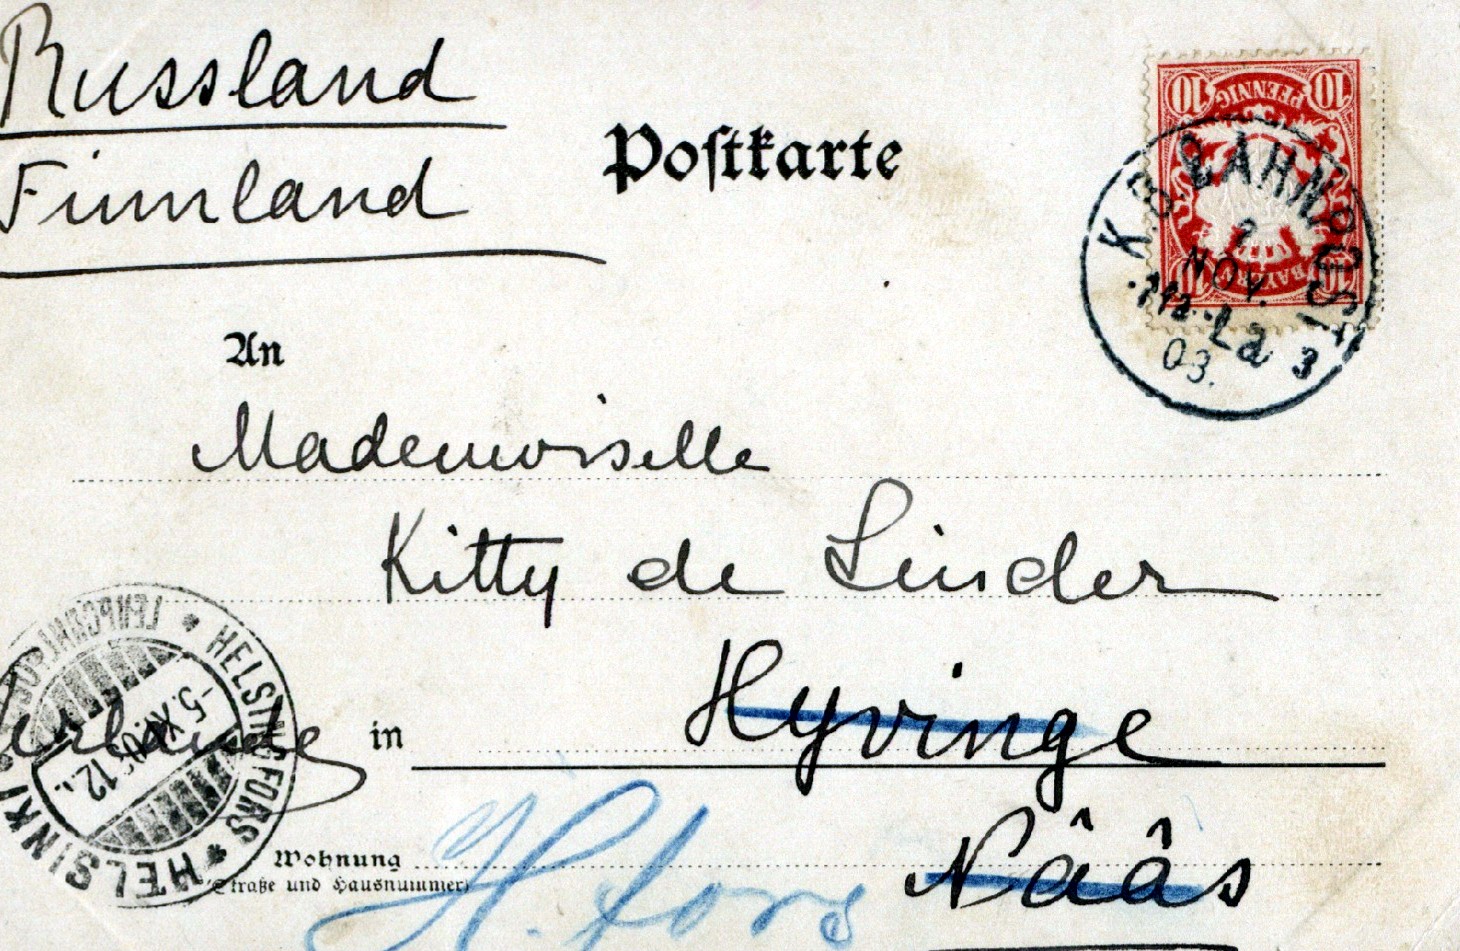 Russland
Finnland
Postkarte
10 PFENNIG 10
10 BAYERN 10
K.B. BAHNPOST
NOV.
03.
3
An
Mademoiselle
Kitty de Linder
HELSINGFORS
HELSINKI
-5.XI.03 12
in
Hyvinge
Nââs
Wohnung
(Straße und Hausnummer)
H.fors